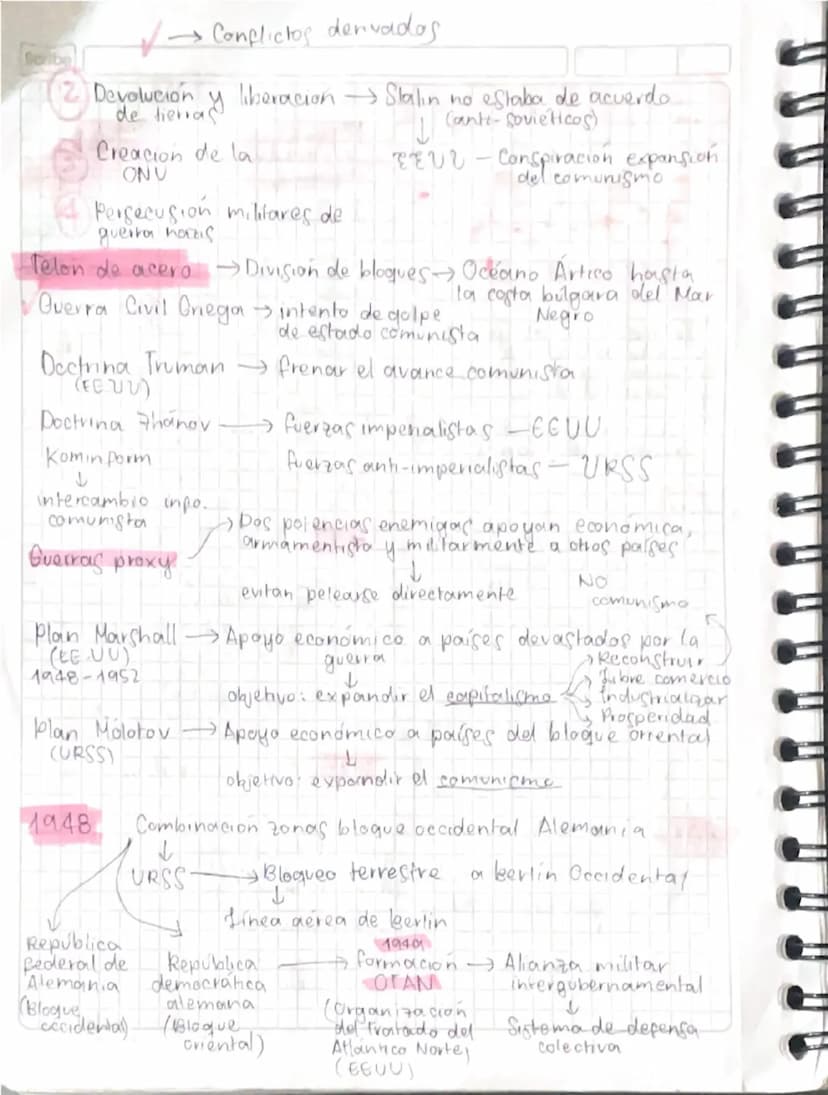 ✓ → Conflictos derivados
Scribe
2 Devolución y liberación → Stalin no estaba de acuerdo
de tierras (anti-sovieticos)
↓
3 Creación de la EEUU – Conspiración expansión
ONU del comunismo
4 Persecusión militares de
guerra nazis
Telón de acero → División de bloques → Océano Ártico hasta
la costa búlgara del Mar
Negro
✓ Guerra Civil Griega → intento de golpe
de estado comunista
Doctrina Truman → frenar el avance comunista
(EEUU)
Doctrina Zhánov → fuerzas imperialistas – EEUU
Kominform fuerzas anti-imperialistas – URSS
↓
intercambio info.
comunista
Guerras proxy → Dos potencias enemigas apoyan económica,
armamentista y militarmente a otros países
↓
evitan pelearse directamente
NO
comunismo
Plan Marshall → Apoyo económico a países devastados por la
(EE.UU) guerra
1948-1952 ↓
objetivo: expandir el capitalismo
→ Reconstruir
→ Libre comercio
→ Industrializar
→ Prosperidad
Plan Mólotov → Apoyo económico a países del bloque oriental
(URSS) ↓
objetivo: expandir el comunismo
1948 Combinación zonas bloque occidental Alemania
↓
URSS → Bloqueo terrestre a Berlín Occidental
↓
Línea aérea de Berlín
República
Federal de
Alemania
(Bloque
occidental)
República
democrática
alemana
(Bloque
oriental)
→ 1949
formación
OTAN
(Organización
del Tratado del
Atlántico Norte)
(EEUU)
→ Alianza militar
intergubernamental
↓
Sistema de defensa
colectiva